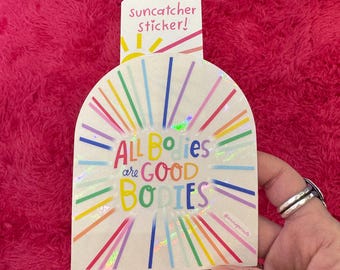 suncatcher
sticker!
ALL BODIES
are GOOD
BODIES